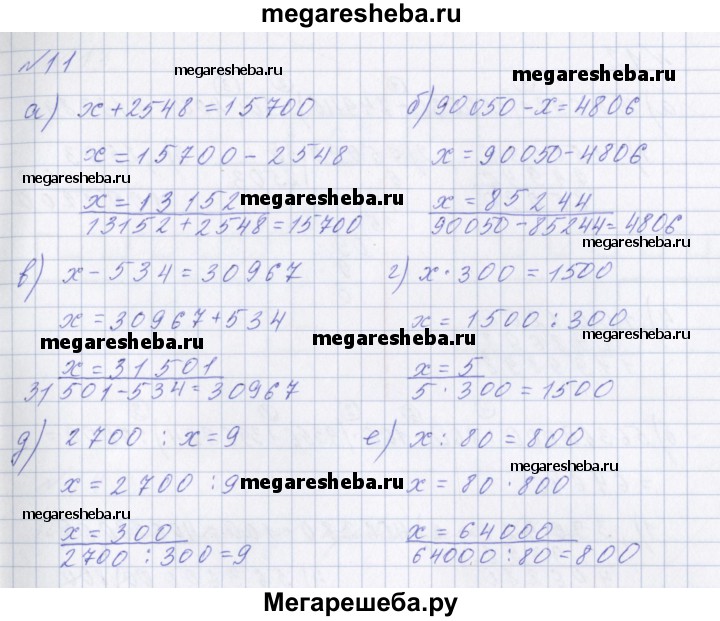 megaresheba.ru
№11
megaresheba.ru
megaresheba.ru
а) x+2548=15700
б) 90050-x=4806
x=15700-2548
x=90050-4806
megaresheba.ru
x=13152
megaresheba.ru
x=85244
13152+2548=15700
90050-85244=4806
megaresheba.ru
в) x-534=30967
г) x·300=1500
x=30967+534
x=1500:300
megaresheba.ru
megaresheba.ru
x=31501
x=5
31501-534=30967
5·300=1500
д) 2700:x=9
е) x:80=800
megaresheba.ru
x=2700:9
megaresheba.ru
x=80·800
megaresheba.ru
x=300
x=64000
2700:300=9
64000:80=800
Мегарешеба.ру